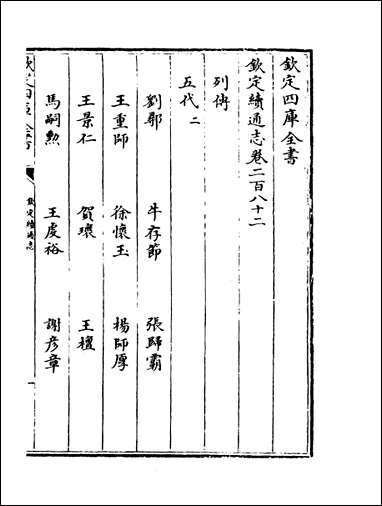 欽定四庫全書
欽定續通志卷二百八十二
列傳
五代二
劉鄩 牛存節 張歸霸
王重師 徐懷玉 楊師厚
王景仁 賀瓌 王檀
馬嗣勲 王虔裕 謝彦章
欽定四庫全書 欽定續通志 一